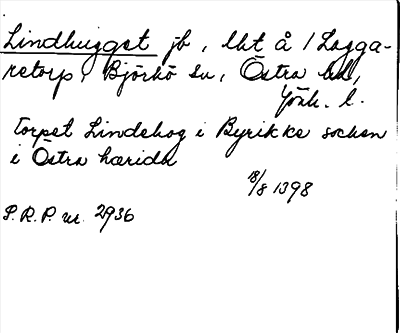 Lindhugget jb, lht å 1 Lagga-
retorp, Björkö sn, Östra hd,
Jönk. l.
torpet Lindehog i Byrikke sochen
i Östra hæridh
18/8 1398
P.R.P. nr. 2936